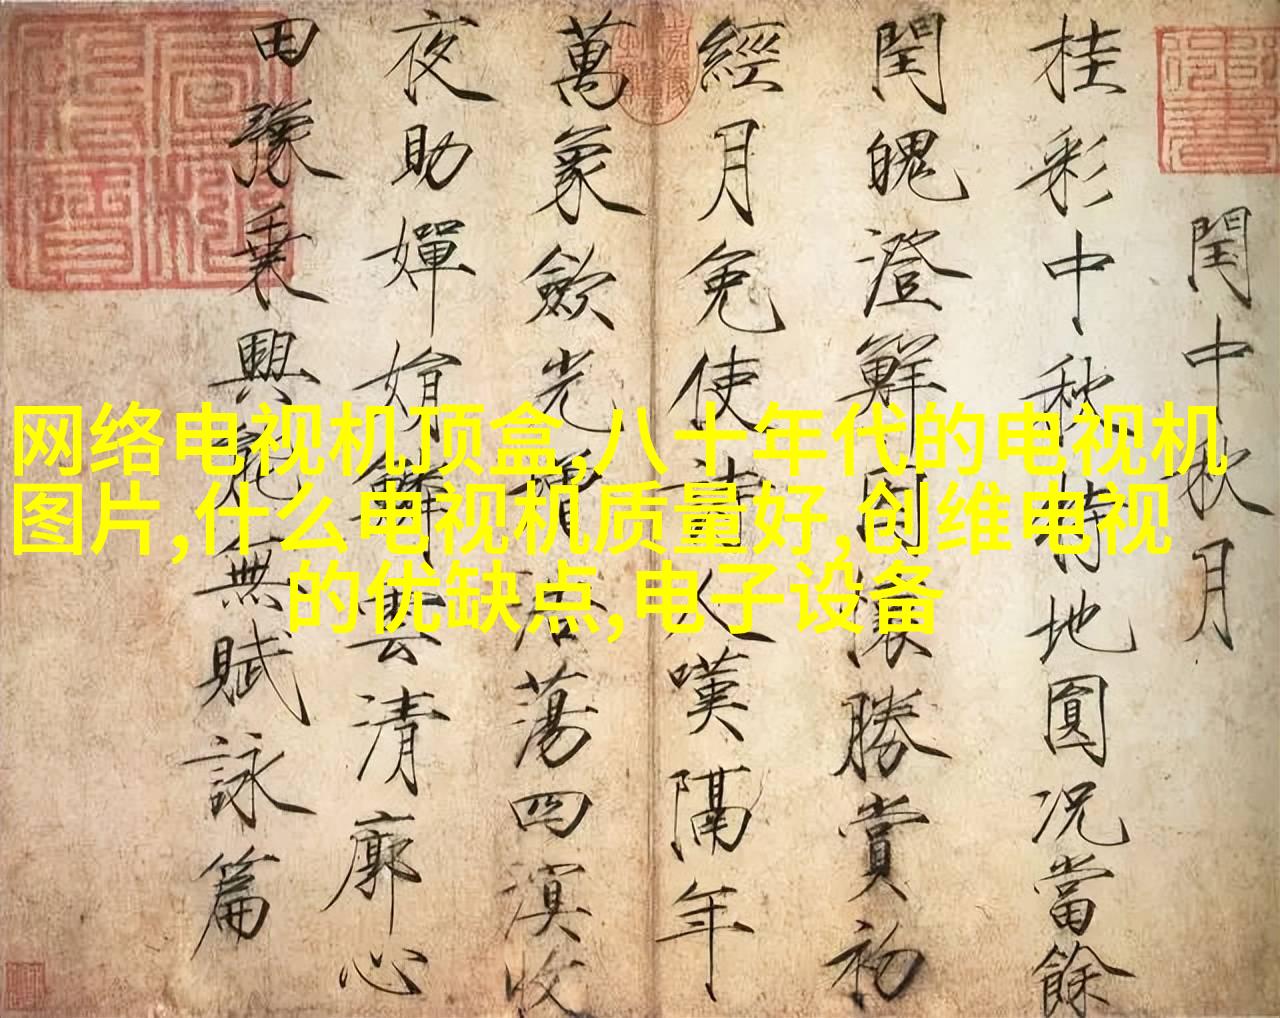 网络电视机顶盒,八十年代的电视机
图片,什么电视机质量好,创维电视
的优缺点,电子设备
閏中秋月
桂彩中秋特地圓况當餘
閏魄澄鮮因懷勝賞初
經月免使詩人嘆隔年
萬象歛光增浩蕩四溟收
夜助嬋娟鱗雲清廓心
田豫乗興能無賦詠篇